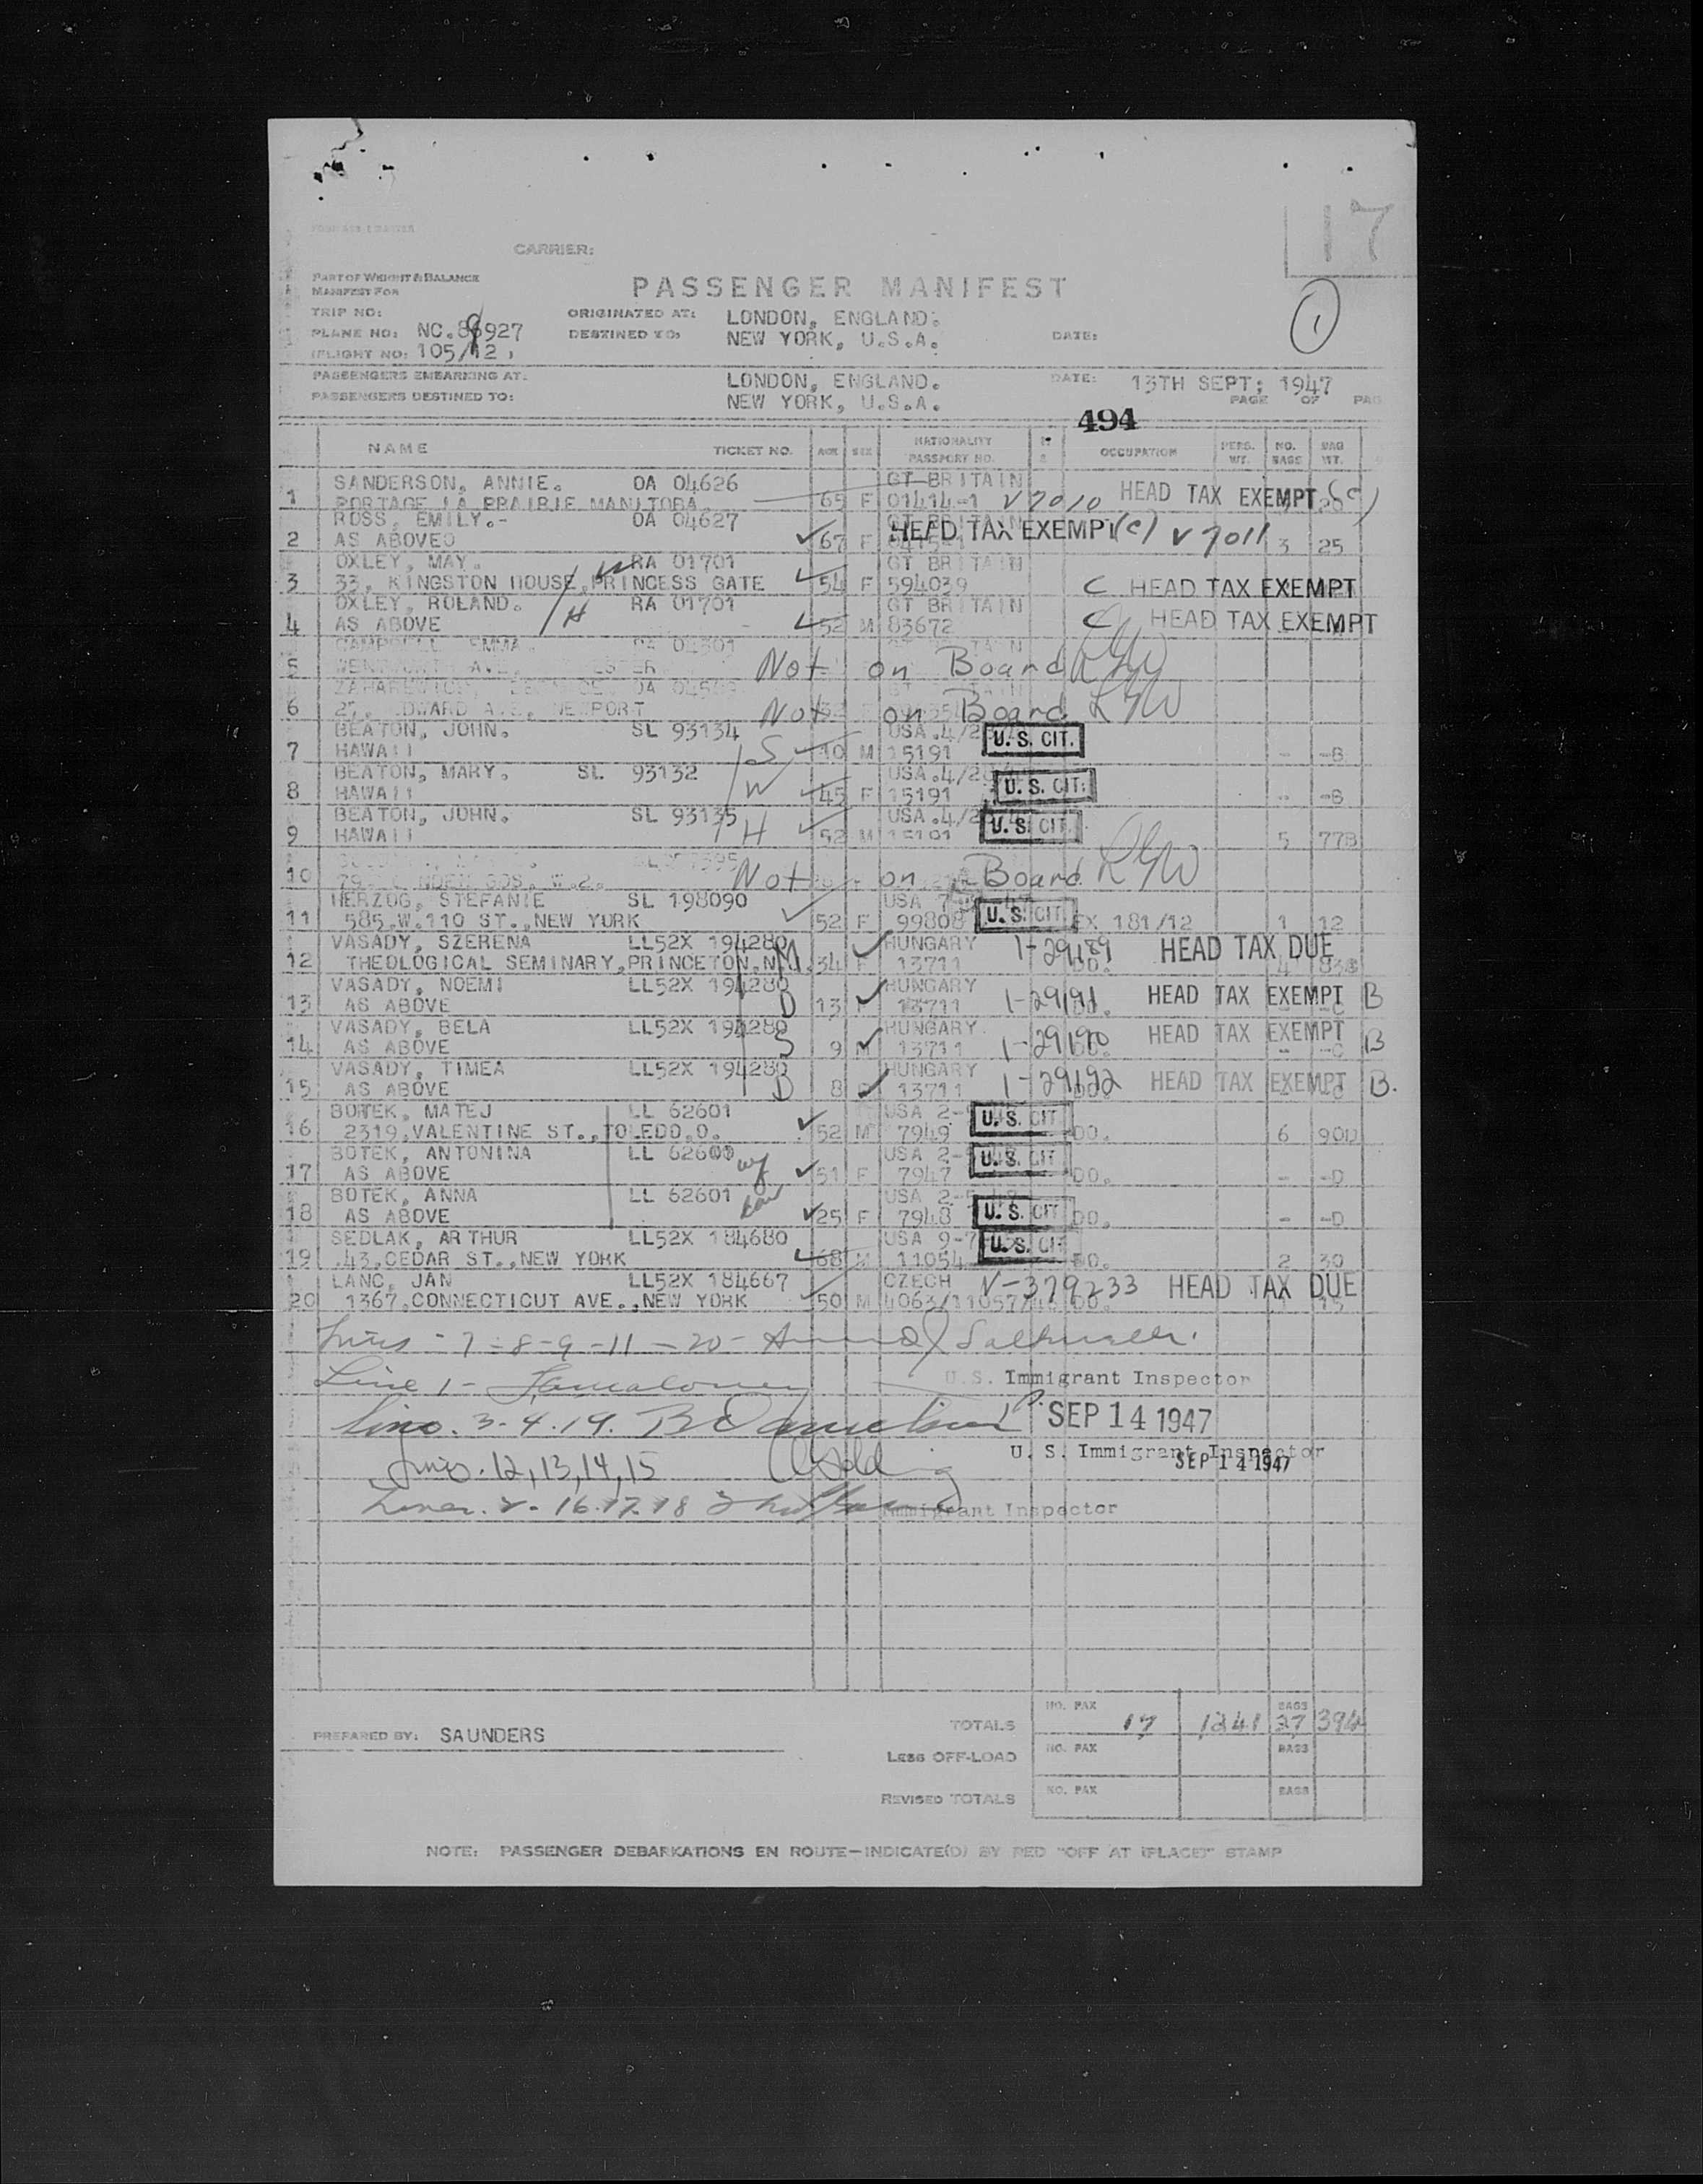 17
CARRIER:
PART OF WEIGHT & BALANCE
MANIFEST FOR
PASSENGER MANIFEST
1
TRIP NO:
ORIGINATED AT: LONDON, ENGLAND.
PLANE NO: NC.89927
DESTINED TO: NEW YORK, U.S.A. DATE:
(FLIGHT NO: 105/12)
PASSENGERS EMBARKING AT: LONDON, ENGLAND. DATE: 13TH SEPT; 1947
PASSENGERS DESTINED TO: NEW YORK, U.S.A. PAGE OF PAG
494
NAME TICKET NO. AGE SEX NATIONALITY PASSPORT NO. OCCUPATION PERS. WT. NO. BAGS BAG WT.
SANDERSON, ANNIE. OA 04626 GT BRITAIN
1 PORTAGE LA PRAIRIE MANITOBA 65 F 01414-1 V 7010 HEAD TAX EXEMPT (C)
ROSS, EMILY.- OA 04627 GT BRITAIN
2 AS ABOVEO 67 F HEAD TAX EXEMPT (C) V 7011 3 25
OXLEY, MAY. RA 01701 GT BRITAIN
3 33, KINGSTON HOUSE, PRINCESS GATE 54 F 594039 C HEAD TAX EXEMPT
OXLEY, ROLAND. /H RA 01701 GT BRITAIN
4 AS ABOVE 52 M 83672 C HEAD TAX EXEMPT
CAMPBELL EMMA.
5 Not on Board
6 27, EDWARD AVE, NEWPORT Not on Board
BEATON, JOHN. SL 93134 USA.4/2
7 HAWAII S 10 M 15191 U. S. CIT. - -B
BEATON, MARY. SL 93132 USA.4/2
8 HAWAII W 45 F 15191 U. S. CIT. - -B
BEATON, JOHN. SL 93135 USA.4/2
9 HAWAII H 52 M 15191 U. S. CIT. 5 77B
10 Not on Board
HERZOG, STEFANIE SL 198090 USA
11 585.W.110 ST., NEW YORK 52 F 99808 U. S. CIT EX 181/12 1 12
VASADY, SZERENA LL52X 194280 HUNGARY
12 THEOLOGICAL SEMINARY, PRINCETON, N M 34 F 13711 1-29189 DO. HEAD TAX DUE
VASADY, NOEMI LL52X 194280 HUNGARY
13 AS ABOVE D 13 F 13711 1-29191 HEAD TAX EXEMPT B
VASADY, BELA LL52X 194280 HUNGARY
14 AS ABOVE S 9 M 13711 1-29190 HEAD TAX EXEMPT B
VASADY, TIMEA LL52X 194280 HUNGARY
15 AS ABOVE D 8 13711 1-29192 HEAD TAX EXEMPT B.
BOTEK, MATEJ LL 62601 USA 2-
16 2319.VALENTINE ST., TOLEDO.O. 52 M 7949 U. S. CIT DO. 6 90D
BOTEK, ANTONINA LL 62600 wf USA 2-
17 AS ABOVE 51 F 7947 U. S. CIT DO. - -D
BOTEK, ANNA LL 62601 dau USA 2-
18 AS ABOVE 25 F 7948 U. S. CIT DO. - -D
SEDLAK, ARTHUR LL52X 184680 USA 9-7
19 .43.CEDAR ST., NEW YORK 68 M 11054 U. S. CIT DO. 2 30
LANC, JAN LL52X 184667 CZECH V-379233 HEAD TAX DUE
20 1367.CONNECTICUT AVE., NEW YORK 50 M 4063/11057/ DO. 1 15
Lines - 7 - 8 - 9 - 11 - 20 -
Line 1 -
U.S. Immigrant Inspector
Lines. 3-4.19.
SEP 14 1947
U. S. Immigrant Inspector
SEP 14 1947
Lines. 12, 13, 14, 15
Lines. 2. 16.17.18
Immigrant Inspector
TOTALS NO. PAX 17 1241 BAGS 27 394
PREPARED BY: SAUNDERS
LESS OFF-LOAD NO. PAX BAGS
REVISED TOTALS NO. PAX BAGS
NOTE: PASSENGER DEBARKATIONS EN ROUTE—INDICATE(D) BY RED "OFF AT (PLACE)" STAMP